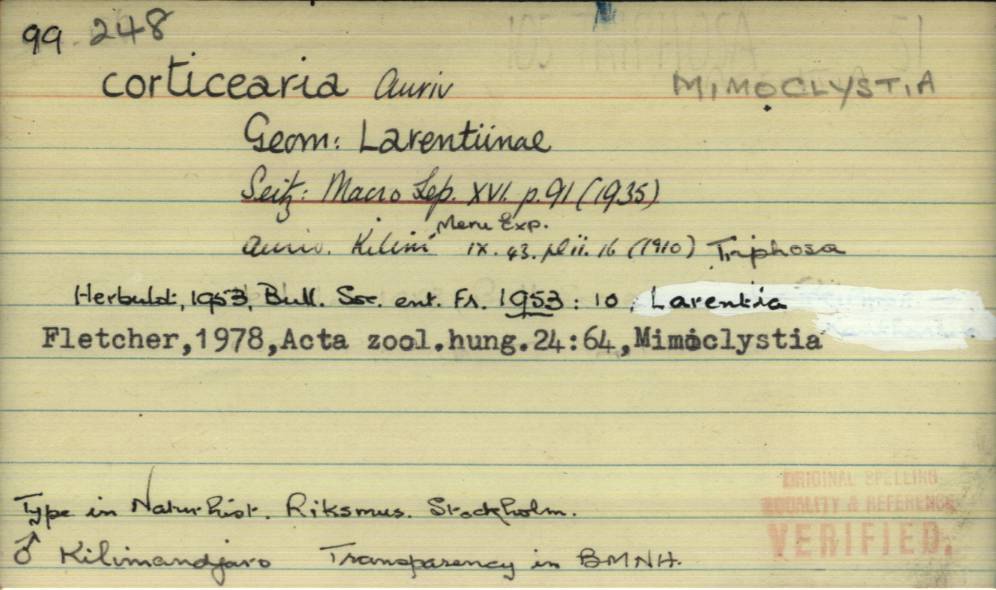 99 248
corticearia Auriv MIMOCLYSTIA
Geom: Larentiinae
Seitz: Macro Lep. XVI. p.91 (1935)
Auriv. Kilim Meru Exp. IX. 43. pl ii. 16 (1910) Triphosa
Herbulot, 1953, Bull. Soc. ent. Fr. 1953 : 10, Larentia
Fletcher,1978,Acta zool.hung.24:64,Mimoclystia
Type in Naturhist. Riksmus. Stockholm.
♂ Kilimandjaro Transparency in BMNH.
ORIGINAL SPELLING
LOCALITY & REFERENCE
VERIFIED.